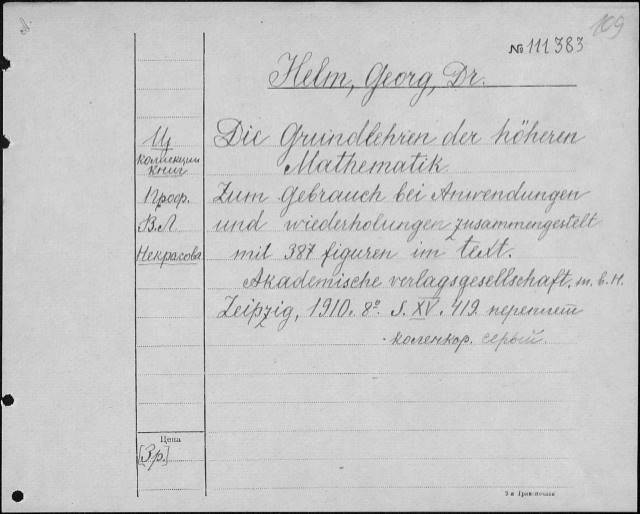 169
№ 111383
Helm, Georg, Dr.
Die Grundlehren der höheren
Mathematik
Zum Gebrauch bei Anwendungen
und wiederholungen zusammengestelt
mit 387 figuren im text.
Akademische verlagsgesellschaft. m. b. H.
Leipzig, 1910. 8º. S. XV. 419 переплет
коленкор. серый.
Ц
коллекции
книг
Проф.
В.Л
Некрасова
Цена
[3р.]